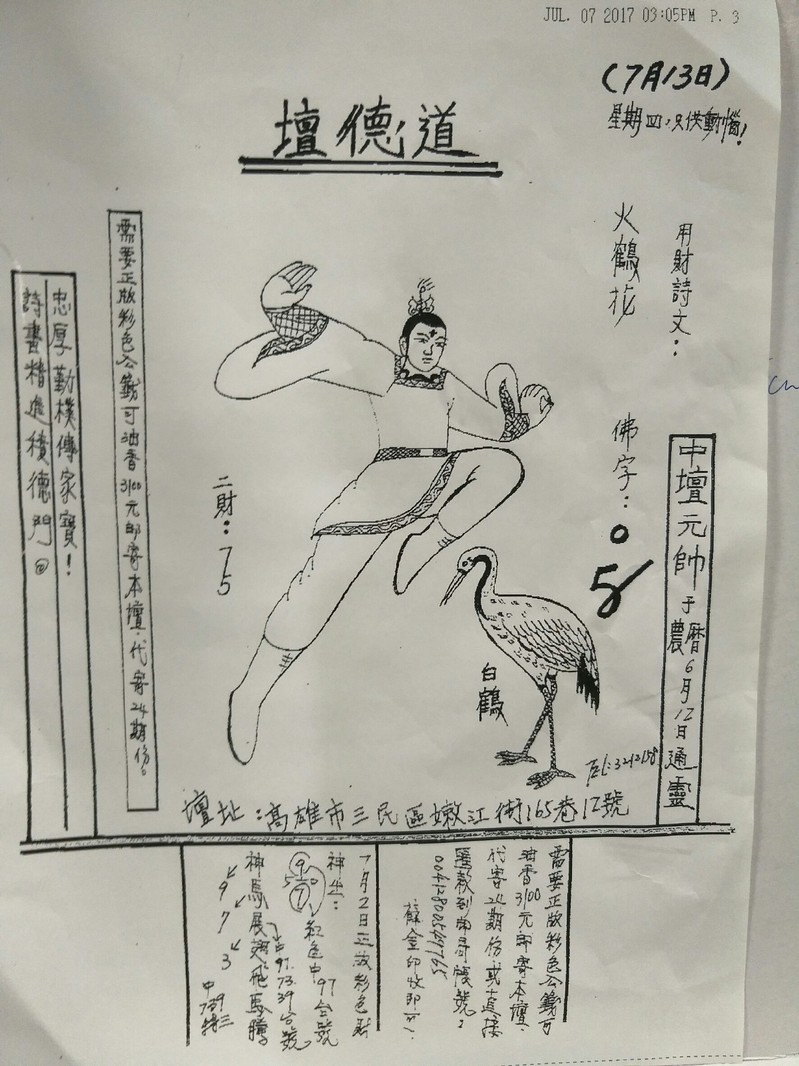 JUL. 07 2017 03:05PM P. 3
(7月13日)
星期四,只供動惱!
道德壇
用財詩文:
火鶴花
佛字:0
5
中壇元帥于農曆6月12日通靈
二財:75
白鶴
需要正版彩色公籤可油香3100元郵寄本壇.代寄24期份。
忠厚勤樸傳家寶!
詩書精進積德門。
壇址:高雄市三民區嫩江街165巷12號
需要正版彩色公籤可
油香3100元郵寄本壇.
代寄24期份.或直接
匯款到郵局帳號:
蘇金印收即可.
神馬展翅飛馬騰。
9 7 3
紅色中97合號
中97.73.39合號
中739特三